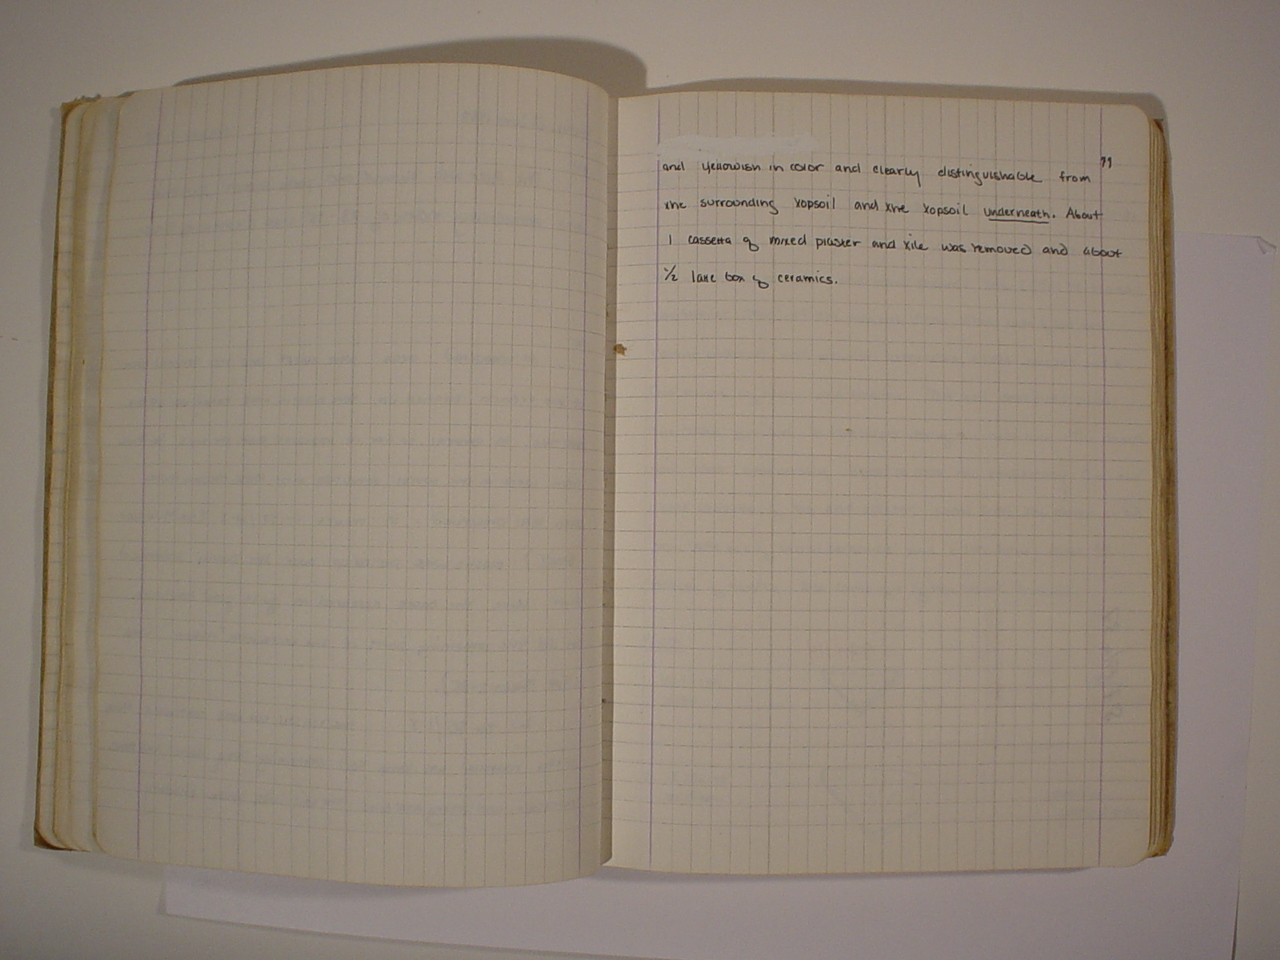 99
and yellowish in color and clearly distinguishable from
the surrounding topsoil and the topsoil underneath. About
1 cassetta of mixed plaster and tile was removed and about
1/2 box of ceramics.